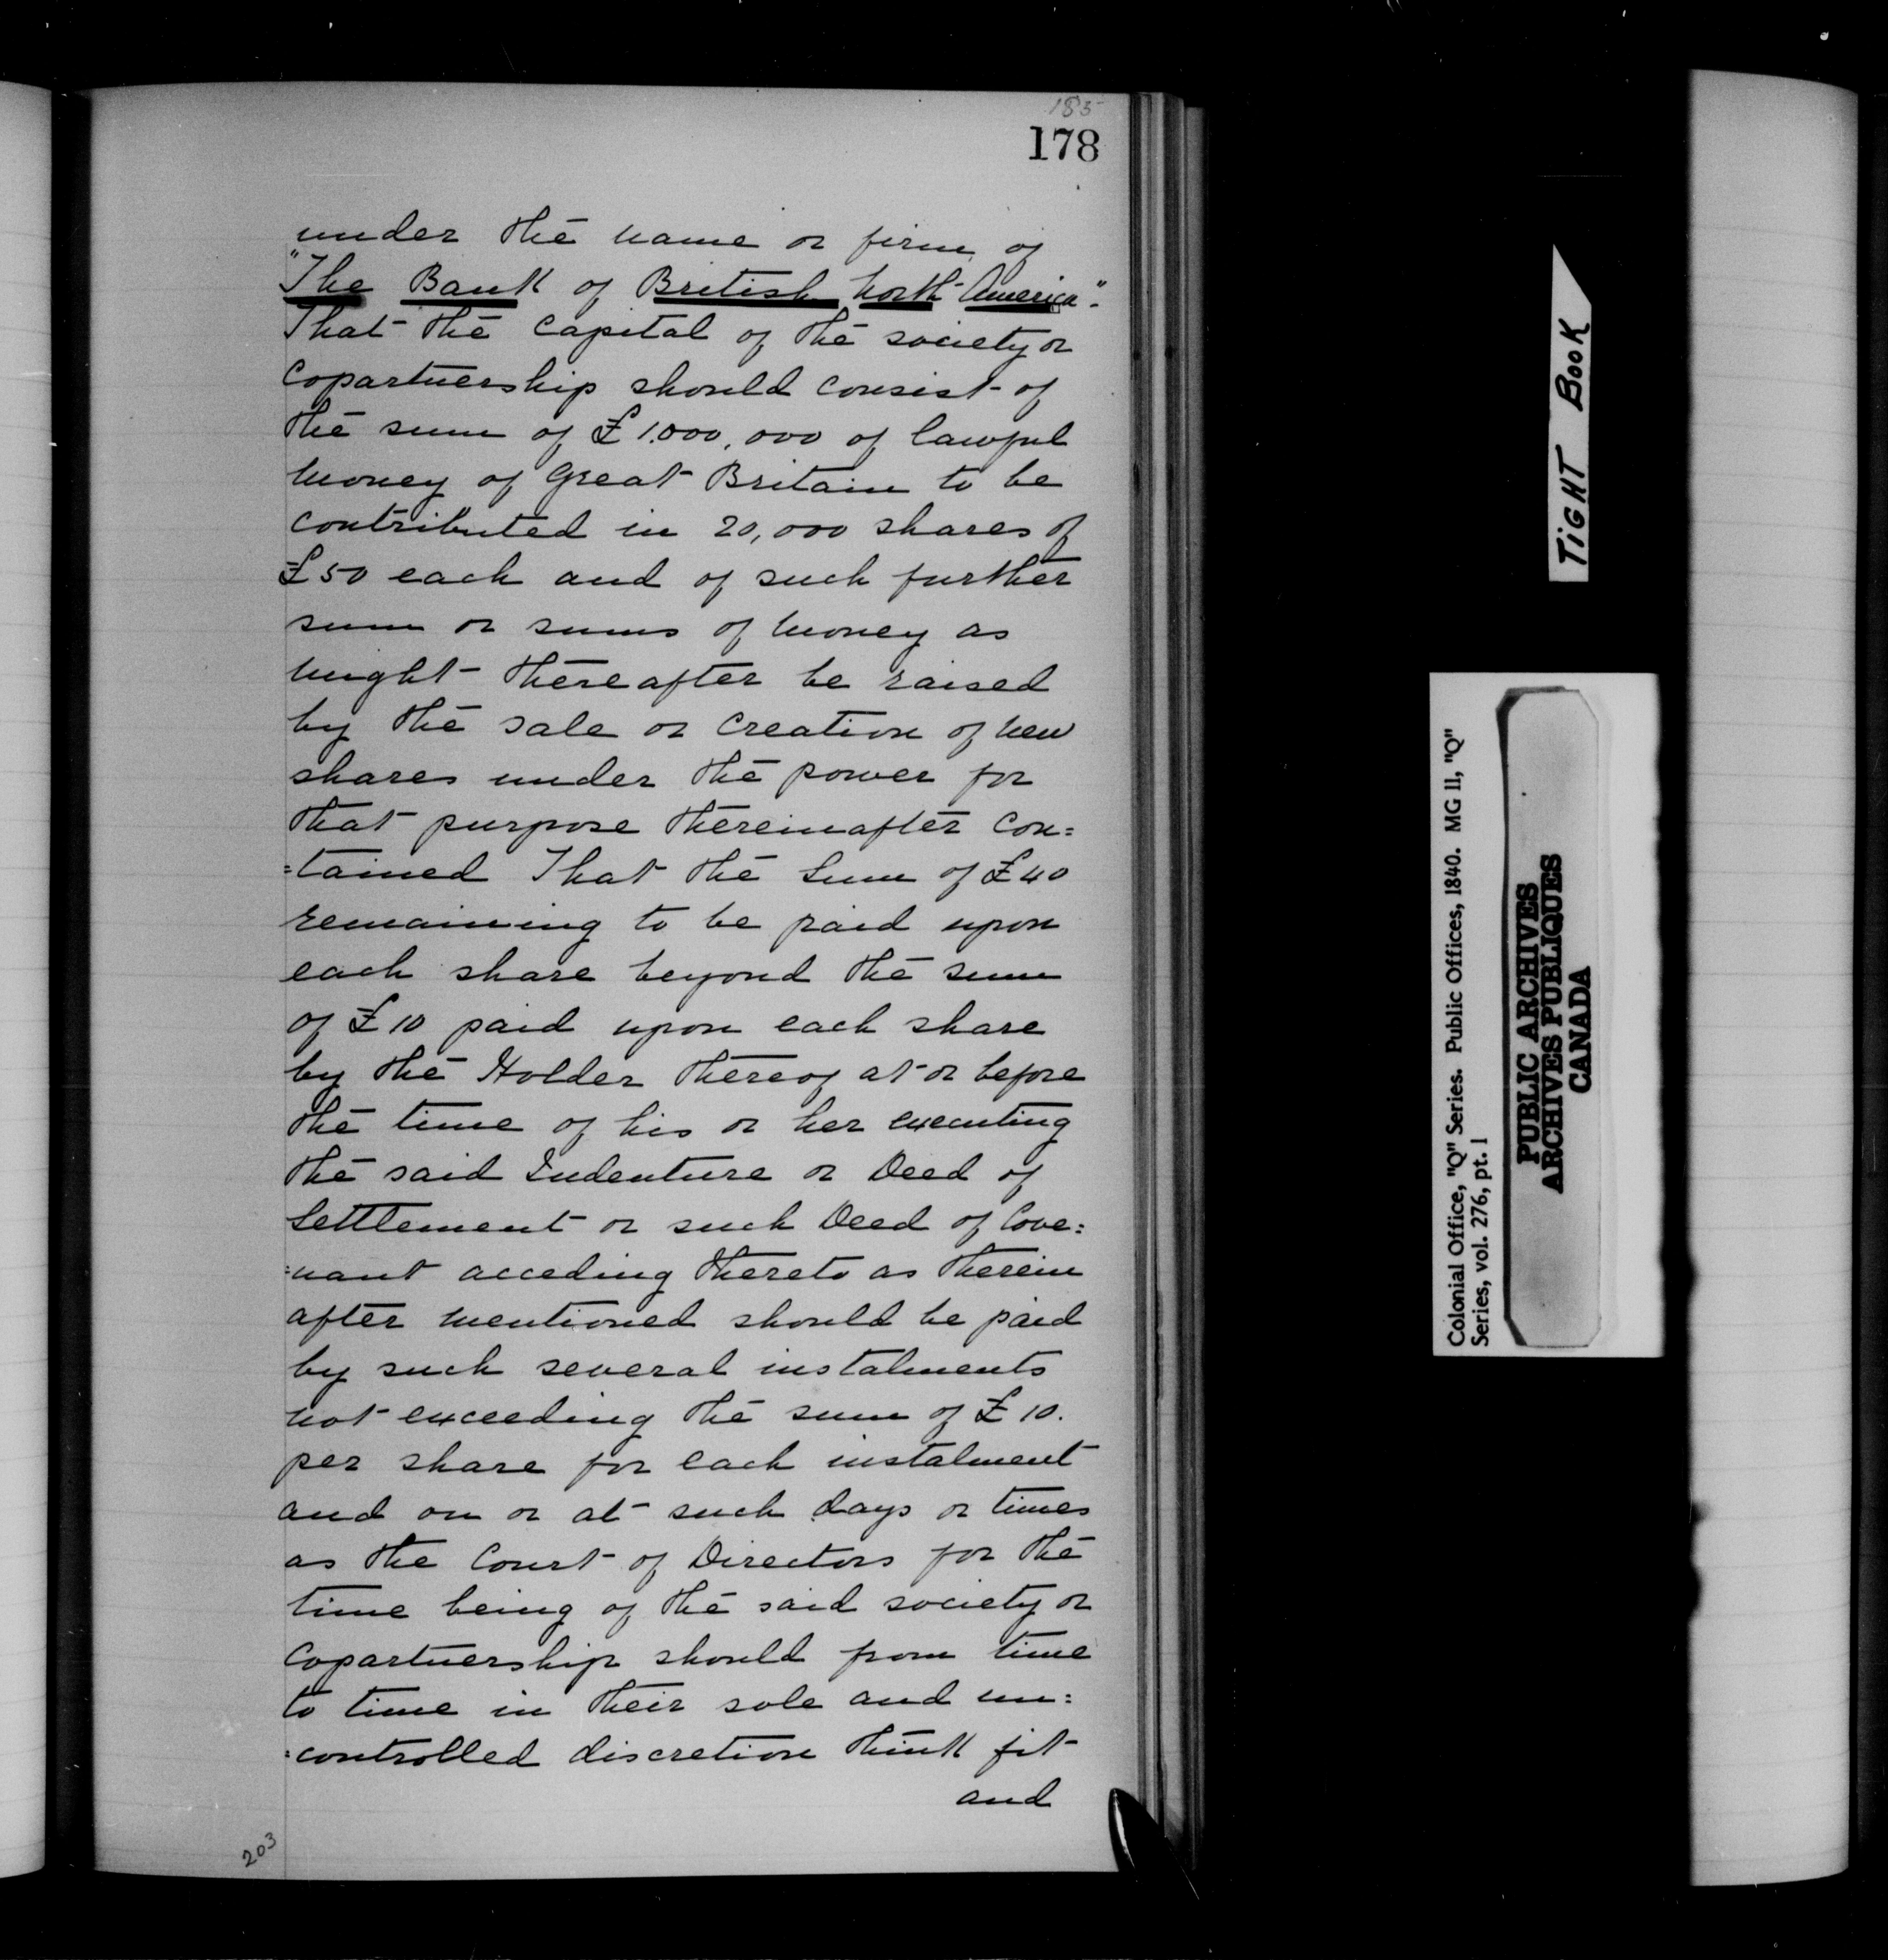 185
178
under the name or firm of
"The Bank of British North America".
That the Capital of the society or
Copartnership should consist of
the sum of £1.000,000 of lawful
money of Great Britain to be
contributed in 20,000 shares of
£50 each and of such further
sum or sums of money as
might thereafter be raised
by the sale or creation of new
shares under the power for
that purpose thereinafter con=
=tained That the Sum of £40
remaining to be paid upon
each share beyond the sum
of £10 paid upon each share
by the Holder thereof at or before
the time of his or her executing
the said Indenture or Deed of
Settlement or such Deed of Cove=
=nant acceding thereto as therein
after mentioned should be paid
by such several instalments
not exceeding the sum of £10.
per share for each instalment
and on or at such days or times
as the Court of Directors for the
time being of the said society or
Copartnership should from time
to time in their sole and un=
=controlled discretion think fit
and
203
TIGHT BOOK
Colonial Office, "Q" Series. Public Offices, 1840. MG 11, "Q"
Series, vol. 276, pt. 1
PUBLIC ARCHIVES
ARCHIVES PUBLIQUES
CANADA